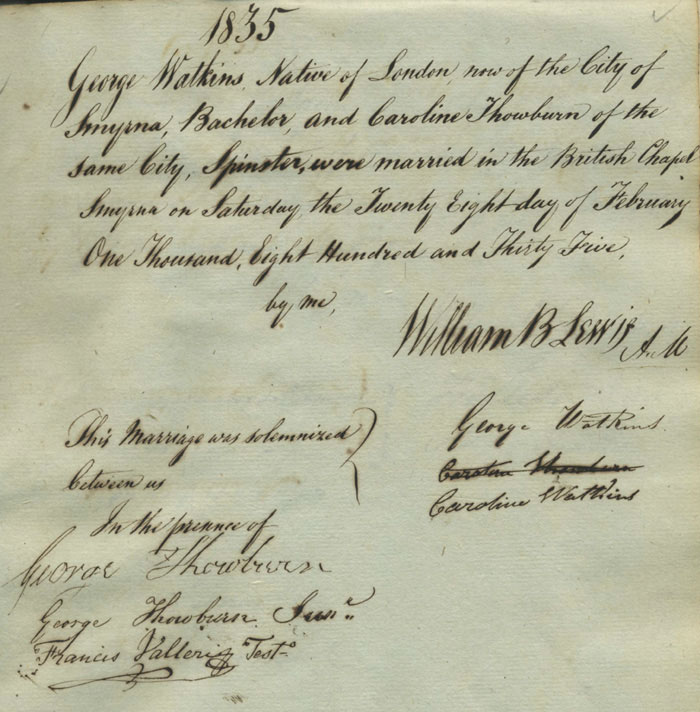 1835
George Watkins, Native of London, now of the City of
Smyrna, Bachelor, and Caroline Thowburn of the
same City, Spinster, were married in the British Chapel
Smyrna on Saturday the Twenty Eight day of February
One Thousand, Eight Hundred and Thirty Five,
by me,
William B Lewis, A.M
This Marriage was solemnized
between us
George Watkins.
Caroline Thowburn
Caroline Watkins
In the presence of
George Thowburn
George Thowburn Junr
Francis Vallerig Testo